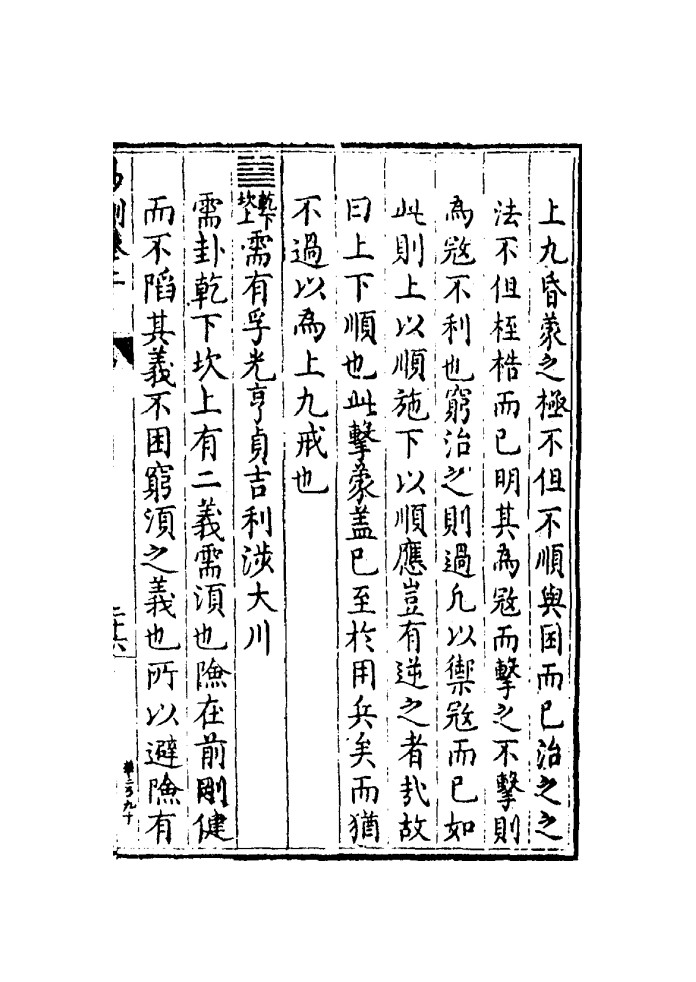 上九昏蒙之極不但不順與困而已治之之
法不但桎梏而已明其為寇而擊之不擊則
為寇不利也窮治之則過凢以禦寇而已如
此則上以順施下以順應豈有逆之者㢤故
曰上下順也此擊蒙盖已至於用兵矣而猶
不過以為上九戒也
䷄乾下坎上需有孚光亨貞吉利涉大川
需卦乾下坎上有二義需湏也險在前剛健
而不陷其義不困窮湏之義也所以避險有
二十六